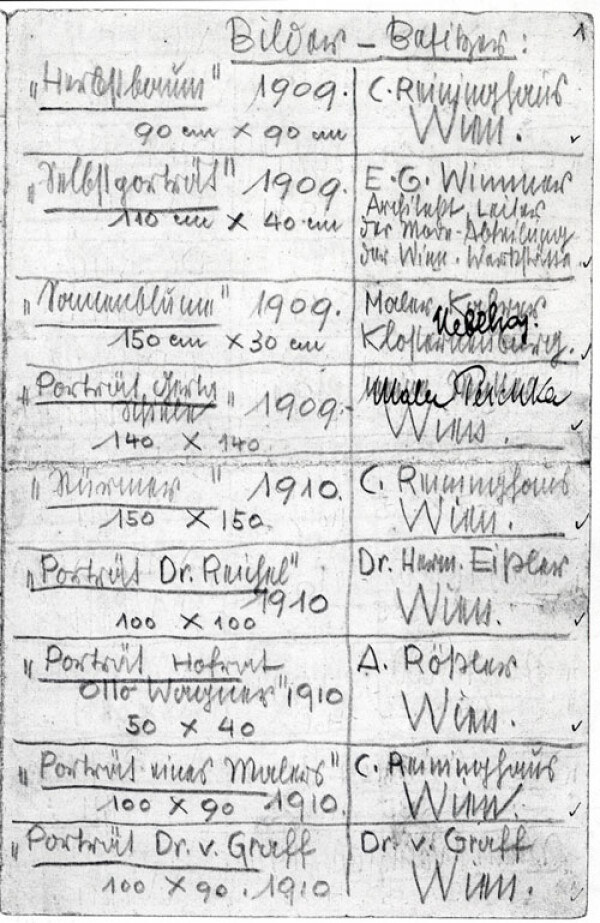 Bilder – Besitzer:
1
"Herbstbaum" 1909.
90 cm × 90 cm
C. Reininghaus
Wien.
"Selbstporträt" 1909.
110 cm × 40 cm
E. G. Wimmer
Architekt Leiter
der Mode-Abteilung
der Wien. Werkstätte
"Sonnenblume" 1909.
150 cm × 30 cm
Maler
Klosterneuburg.
"Porträt Gerta
Schiele" 1909.
140 × 140
Maler Peschka
Wien.
1910.
150 × 150
C. Reininghaus
Wien.
"Porträt Dr. Reichel"
1910
100 × 100
Dr. Herm. Eißler
Wien.
"Porträt Hofrat
Otto Wagner" 1910
50 × 40
A. Rößler
Wien.
"Porträt eines Malers"
100 × 90 1910.
C. Reininghaus
Wien.
"Porträt Dr. v. Graff
100 × 90. 1910
Dr. v. Graff
Wien.